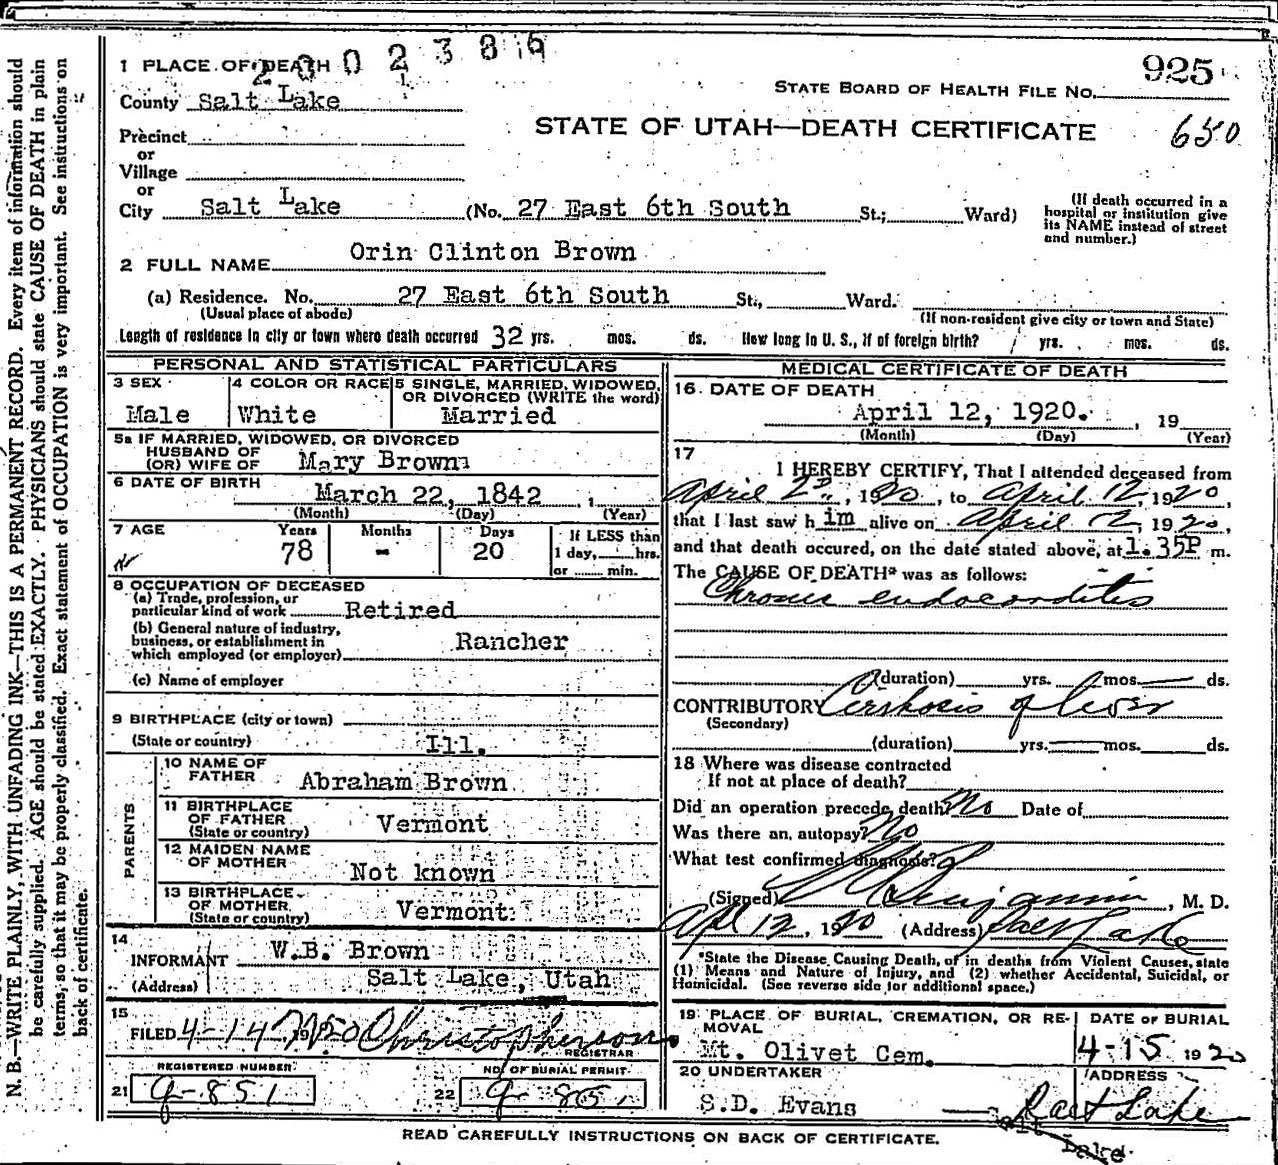 2002386
1 PLACE OF DEATH
925
STATE BOARD OF HEALTH FILE No.
County Salt Lake
STATE OF UTAH—DEATH CERTIFICATE
650
Precinct
or
Village
or
City Salt Lake (No. 27 East 6th South St.; Ward)
(If death occurred in a hospital or institution give its NAME instead of street and number.)
2 FULL NAME Orin Clinton Brown
(a) Residence. No. 27 East 6th South St., Ward.
(Usual place of abode)
(If non-resident give city or town and State)
Length of residence in city or town where death occurred 32 yrs. mos. ds. How long in U. S., if of foreign birth? yrs. mos. ds.
PERSONAL AND STATISTICAL PARTICULARS
3 SEX
Male
4 COLOR OR RACE
White
5 SINGLE, MARRIED, WIDOWED, OR DIVORCED (WRITE the word)
Married
5a IF MARRIED, WIDOWED, OR DIVORCED
HUSBAND OF
(OR) WIFE OF Mary Brown
6 DATE OF BIRTH
March 22, 1842
(Month) (Day) (Year)
7 AGE
Years Months Days
78 - 20
If LESS than
1 day, hrs.
or min.
8 OCCUPATION OF DECEASED
(a) Trade, profession, or
particular kind of work Retired
(b) General nature of industry,
business, or establishment in
which employed (or employer) Rancher
(c) Name of employer
9 BIRTHPLACE (city or town)
(State or country) Ill.
PARENTS
10 NAME OF
FATHER Abraham Brown
11 BIRTHPLACE
OF FATHER
(State or country) Vermont
12 MAIDEN NAME
OF MOTHER Not known
13 BIRTHPLACE
OF MOTHER
(State or country) Vermont
14
INFORMANT W.B. Brown
(Address) Salt Lake, Utah
15
FILED 4-14 1920 Christopherson
REGISTRAR
REGISTERED NUMBER
21 9-851
NO. OF BURIAL PERMIT
22
MEDICAL CERTIFICATE OF DEATH
16 DATE OF DEATH
April 12, 1920. , 19
(Month) (Day) (Year)
17
I HEREBY CERTIFY, That I attended deceased from
April 2, 1920, to April 12, 1920
that I last saw him alive on April 12, 1920,
and that death occured, on the date stated above, at 1.35P m.
The CAUSE OF DEATH* was as follows:
Chronic endocarditis
(duration) yrs. mos. ds.
CONTRIBUTORY Cirrhosis of liver
(Secondary)
(duration) yrs. mos. ds.
18 Where was disease contracted
If not at place of death?
Did an operation precede death? No Date of
Was there an autopsy? No
What test confirmed diagnosis?
(Signed) Benjamin, M. D.
Apl 12, 1920 (Address) Salt Lake
*State the Disease Causing Death, or in deaths from Violent Causes, state
(1) Means and Nature of Injury, and (2) whether Accidental, Suicidal, or
Homicidal. (See reverse side for additional space.)
19 PLACE OF BURIAL, CREMATION, OR RE-
MOVAL
Mt. Olivet Cem.
DATE OF BURIAL
4-15 1920
20 UNDERTAKER
S.D. Evans
ADDRESS
Salt Lake
Salt Lake
READ CAREFULLY INSTRUCTIONS ON BACK OF CERTIFICATE.
N. B.—WRITE PLAINLY, WITH UNFADING INK—THIS IS A PERMANENT RECORD. Every item of information should
be carefully supplied. AGE should be stated EXACTLY. PHYSICIANS should state CAUSE OF DEATH in plain
terms, so that it may be properly classified. Exact statement of OCCUPATION is very important. See instructions on
back of certificate.